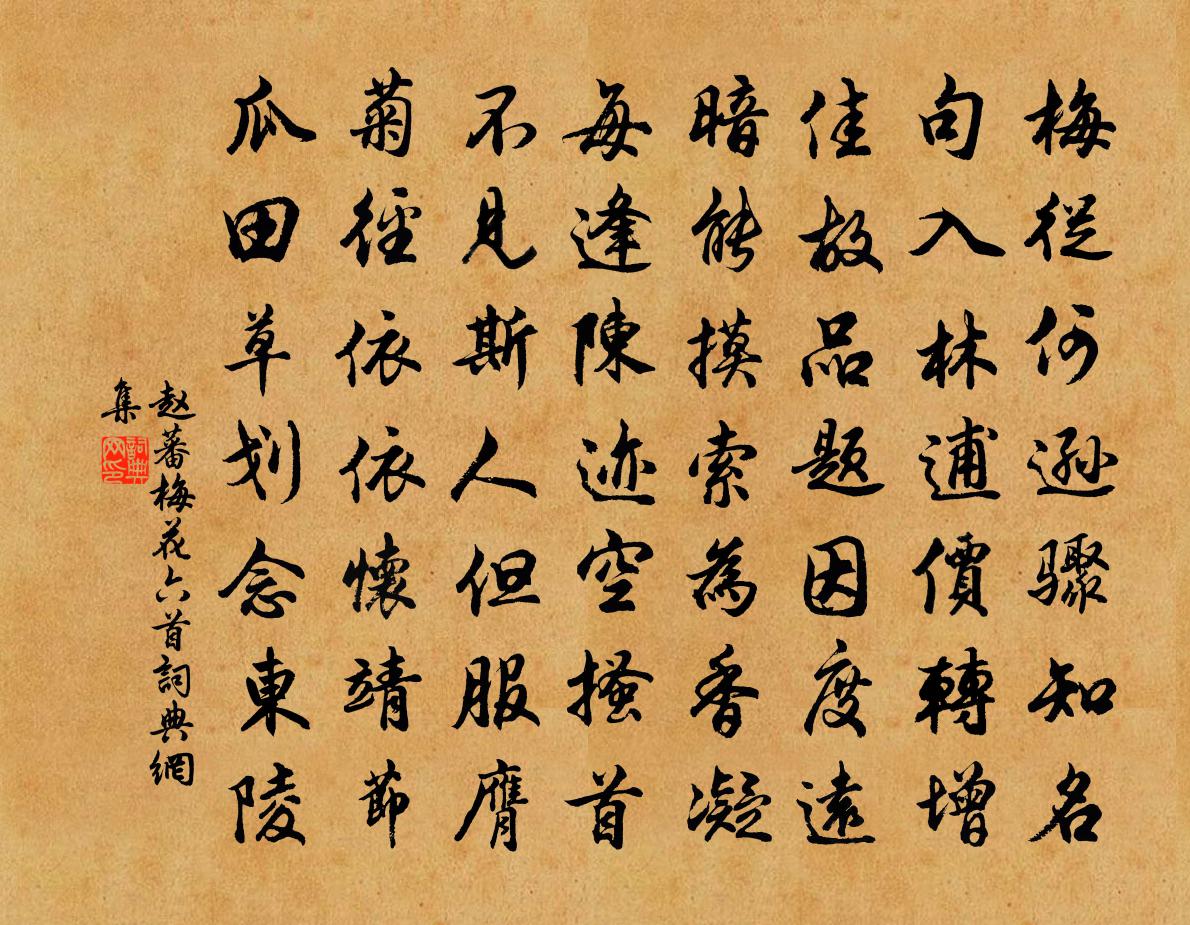 梅從何遜驟知名
句入林逋價轉增
佳故品题因度遠
暗能摸索為香凝
每逢陳迹空搔首
不見斯人但服膺
菊徑依依懷靖節
瓜田草划念東陵
赵蕃梅花六首詞典網
集